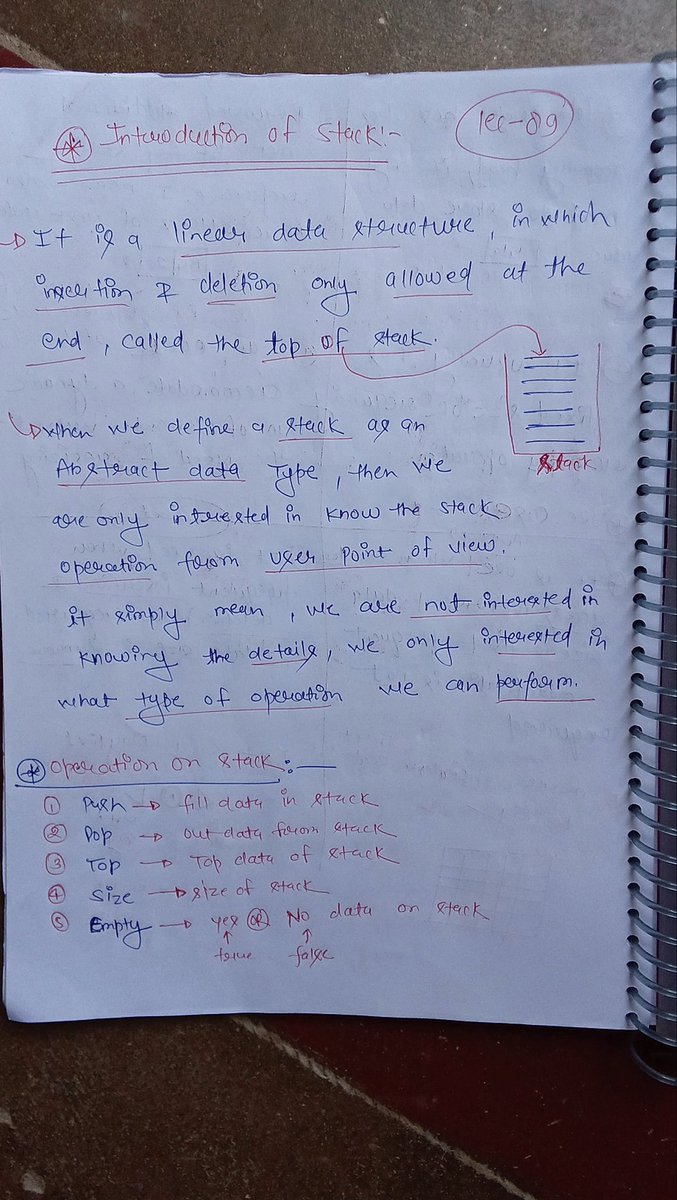 Introduction of Stack:-
lec-89
It is a linear data structure, in which
insertion & deletion only allowed at the
end, called the top of stack.
Stack
when we define a stack as an
Abstract data Type, then we
are only interested in know the stack
operation from user point of view.
it simply mean, we are not interested in
knowing the details, we only interested in
what type of operation we can perform.
operation on stack:-
① Push → fill data in stack
② Pop → out data from stack
③ Top → Top data of stack
④ Size → size of stack
⑤ Empty → yes OR No data on stack
true false